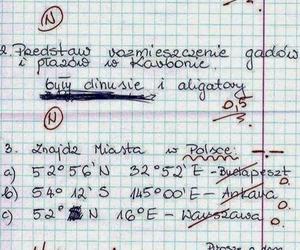 N
2. Przedstaw rozmieszczenie gadów
i ptazów w Karbonie.
były dinusie i aligatory
0,5
3
N
3. Znajdz Miasta w Polsce:
a) 52°56'N 32°52'E - Budapeszt
0.
b) 54° 12'S 145°00'E - Ankara
0.
c) 52° N 16°E - Warszawa
0.